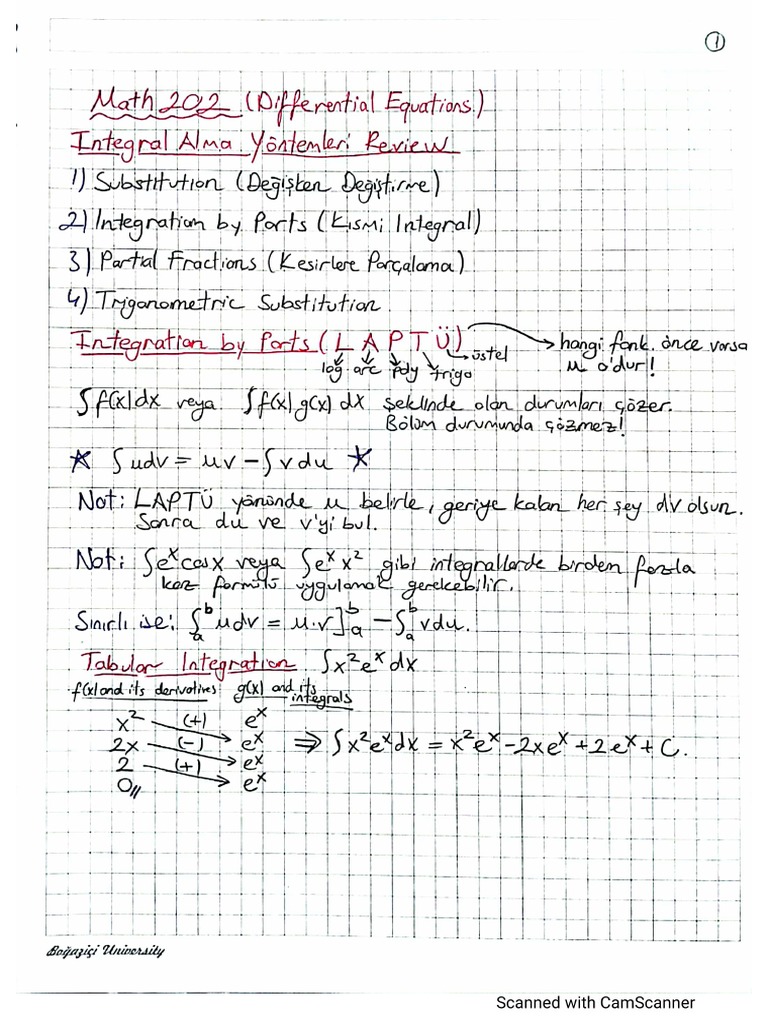 1
Math 202 (Differential Equations.)
Integral Alma Yöntemleri Review
1) Substitution (Değişken Değiştirme)
2) Integration by Parts (Kısmi Integral)
3) Partial Fractions (Kesirlere Parçalama)
4) Trigonometric Substitution
Integration by Parts (L A P T Ü) → hangi fonk. önce varsa
log arc poly trigo üstel u o'dur!
∫f(x)dx veya ∫f(x)g(x)dx şeklinde olan durumları çözer.
Bölüm durumunda çözmez!
★ ∫udv = uv - ∫vdu ★
Not: LAPTÜ yönünde u belirle, geriye kalan her şey dv olsun.
Sonra du ve v'yi bul.
Not: ∫e^x cosx veya ∫e^x x² gibi integrallerde birden fazla
kez formülü uygulamak gerekebilir.
Sınırlı ise: ∫_a^b udv = u.v]_a^b - ∫_a^b vdu.
Tabular Integration ∫x²e^x dx
f(x) and its derivatives g(x) and its integrals
x² (+) e^x
2x (-) e^x ⇒ ∫x²e^x dx = x²e^x - 2xe^x + 2e^x + C.
2 (+) e^x
0// e^x
Boğaziçi University
Scanned with CamScanner